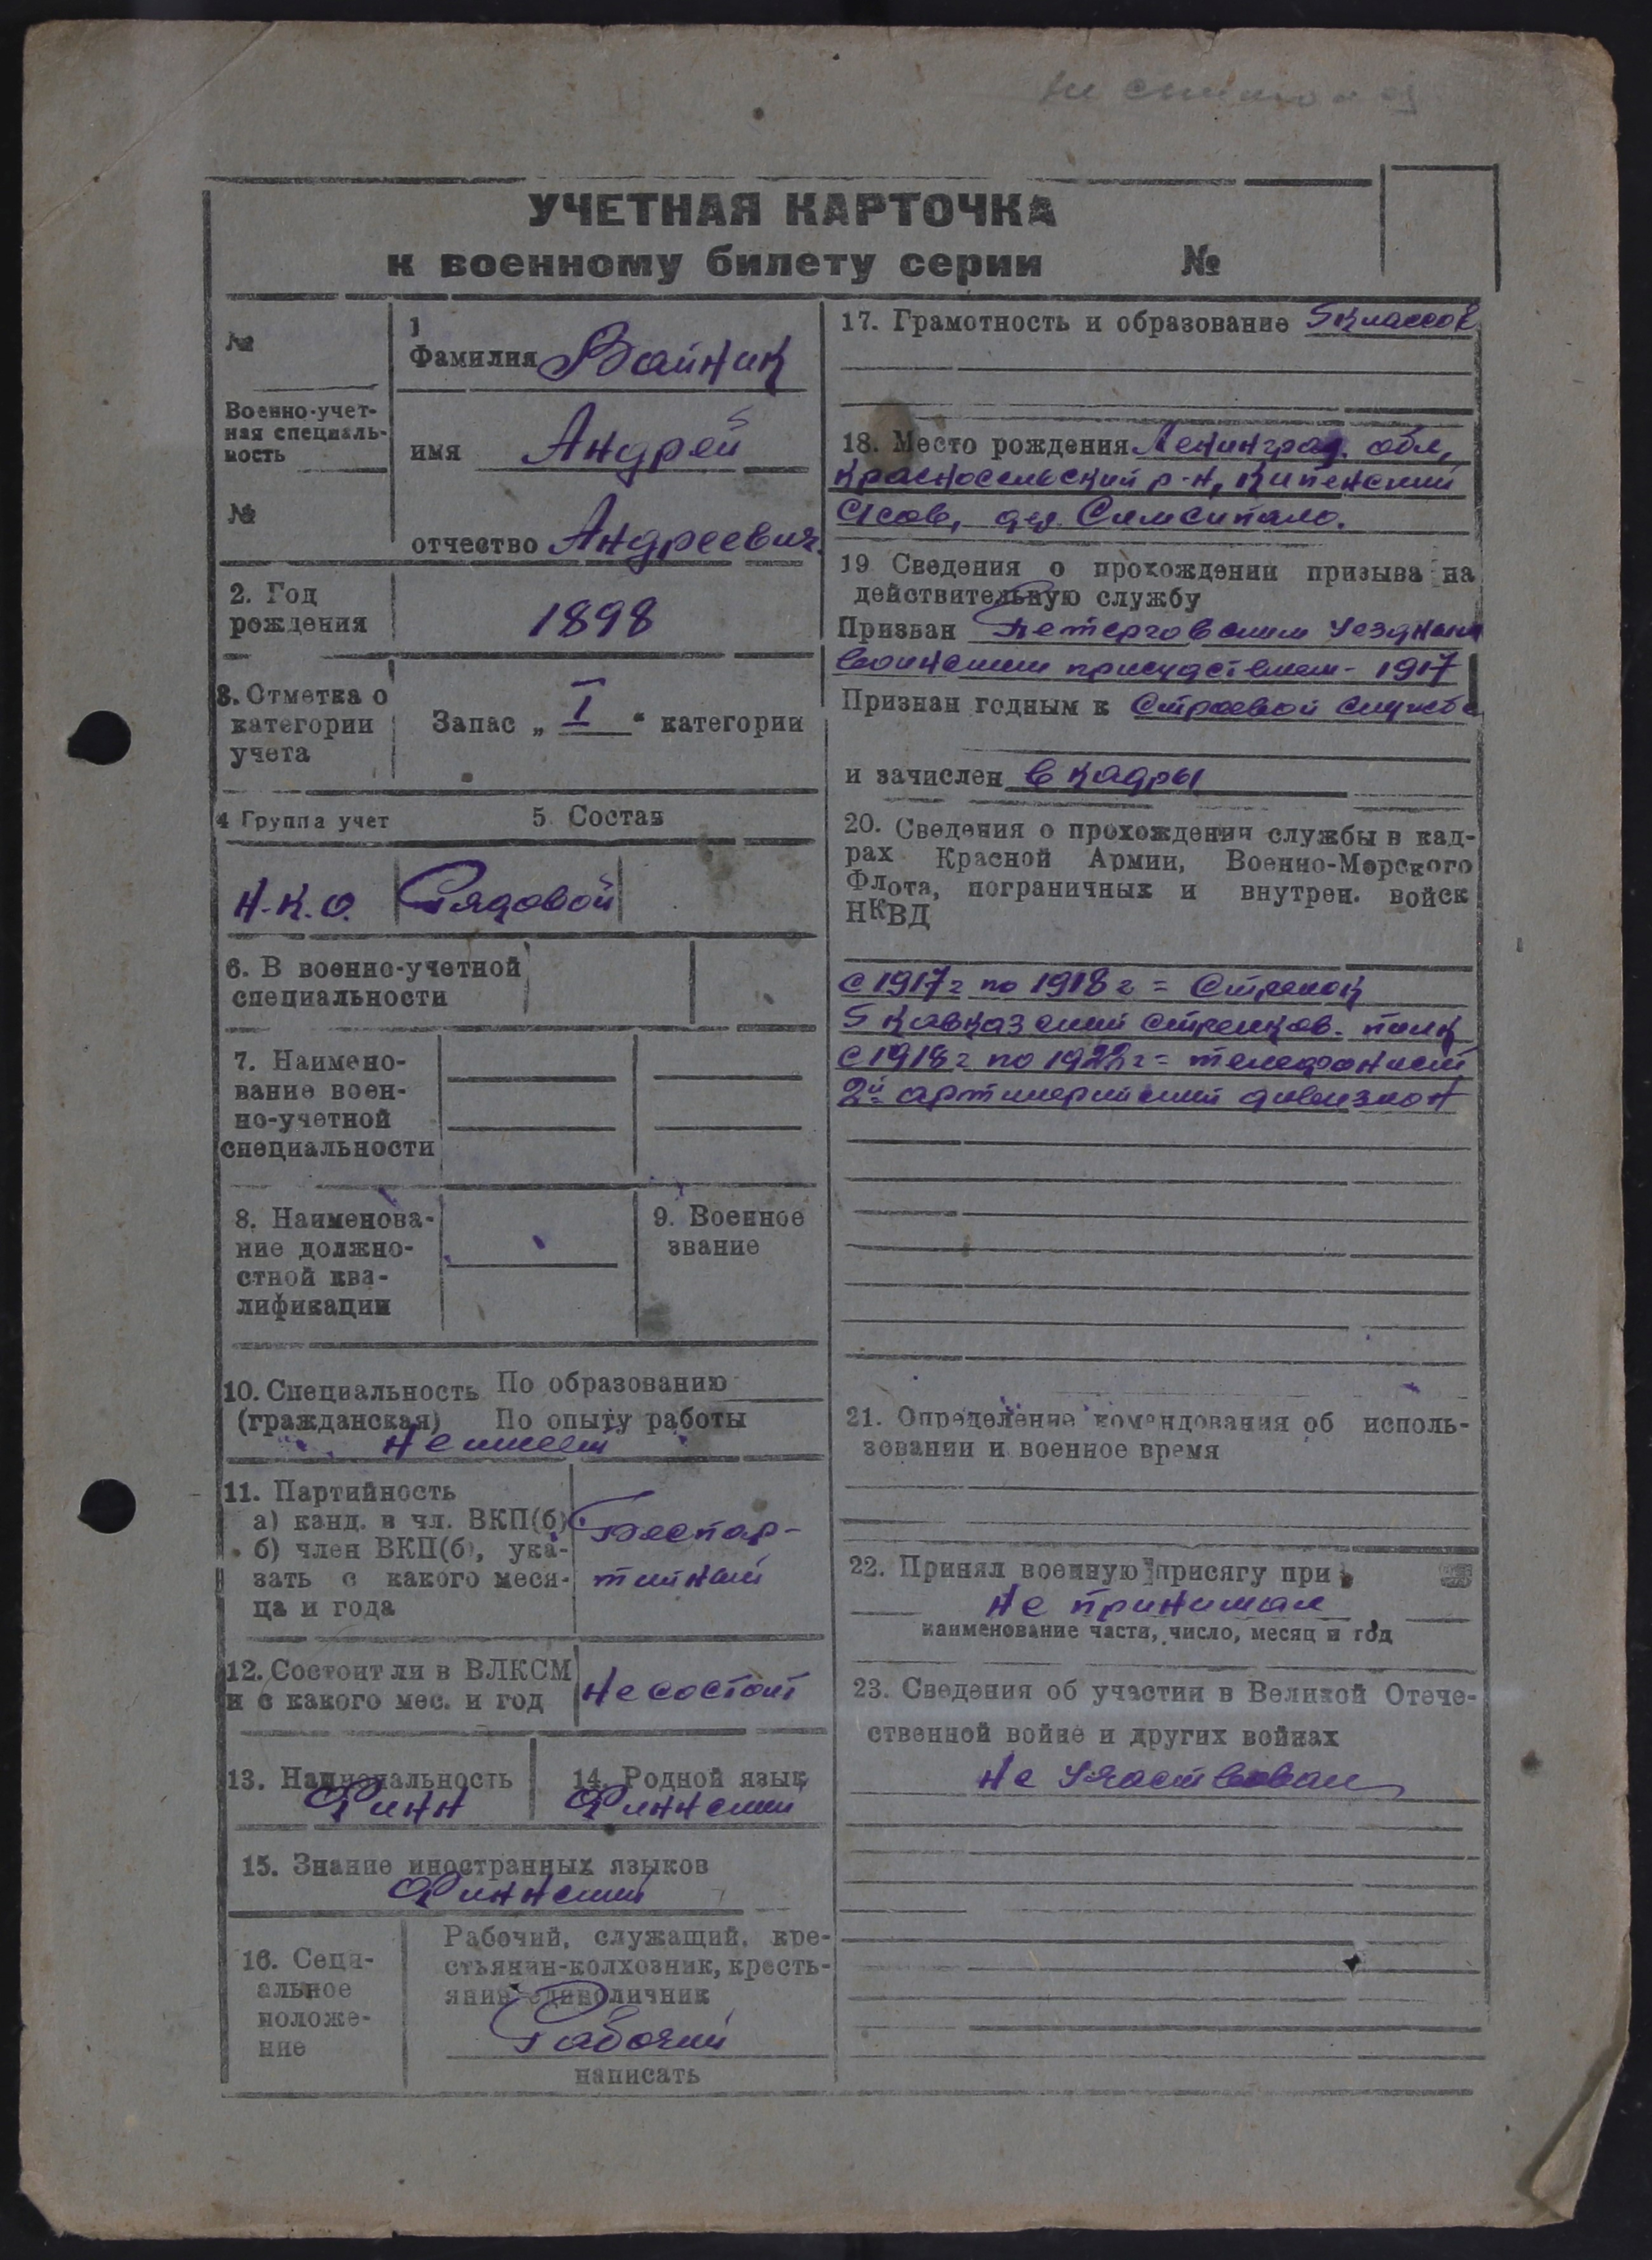 УЧЕТНАЯ КАРТОЧКА
к военному билету серии №
№
Военно-учет-
ная специаль-
ность
№
1
Фамилия Вайник
имя Андрей
отчество Андреевич.
2. Год
рождения
1898
3. Отметка о
категории
учета
Запас „ I " категории
4 Группа учет
5. Состав
Н.К.О. Рядовой
6. В военно-учетной
специальности
7. Наимено-
вание воен-
но-учетной
специальности
8. Наименова-
ние должно-
стной ква-
лификации
9. Военное
звание
10. Специальность По образованию
(гражданская) По опыту работы
Не имеет
11. Партийность
а) канд. в чл. ВКП(б)
б) член ВКП(б), ука-
зать с какого меся-
ца и года
Беспар-
тийный
12. Состоит ли в ВЛКСМ
и с какого мес. и год
Не состоит
13. Национальность
Финн
14. Родной язык
Финнский
15. Знание иностранных языков
Финнский
16. Соци-
альное
положе-
ние
Рабочий, служащий, кре-
стьянин-колхозник, кресть-
янин единоличник
Рабочий
написать
17. Грамотность и образование 5 классов
18. Место рождения Ленинград. обл,
Красносельский р-н, Кипенский
с/сов, дер. Симсипало.
19 Сведения о прохождении призыва на
действительную службу
Призван Петерговским Уездным
воинским присудствием - 1917
Признан годным к Строевой службе
и зачислен в кадры
20. Сведения о прохождении службы в кад-
рах Красной Армии, Военно-Морского
Флота, пограничных и внутрен. войск
НКВД
с 1917 г по 1918 г = Стрелок
5 Кавказский стрелков. полк
с 1918 г по 1922 г = телефонист
2й артилерийский дивизион
21. Определение командования об исполь-
зовании и военное время
22. Принял военную присягу при
Не принимал
наименование части, число, месяц и год
23. Сведения об участии в Великой Отече-
ственной войне и других войнах
Не участвовал